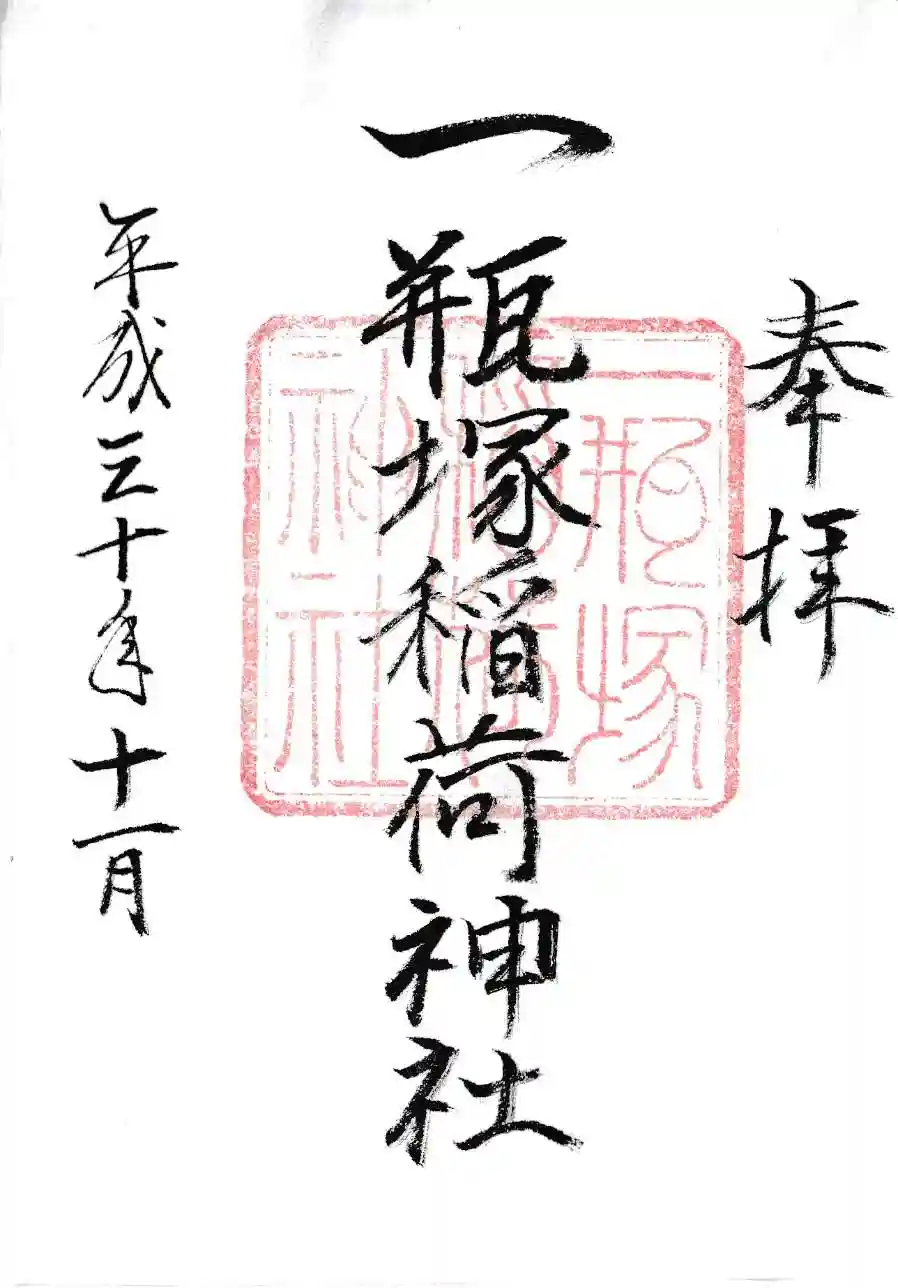 奉拝
一瓶塚稲荷神社
平成三十年十一月
一瓶塚
稲荷
神社